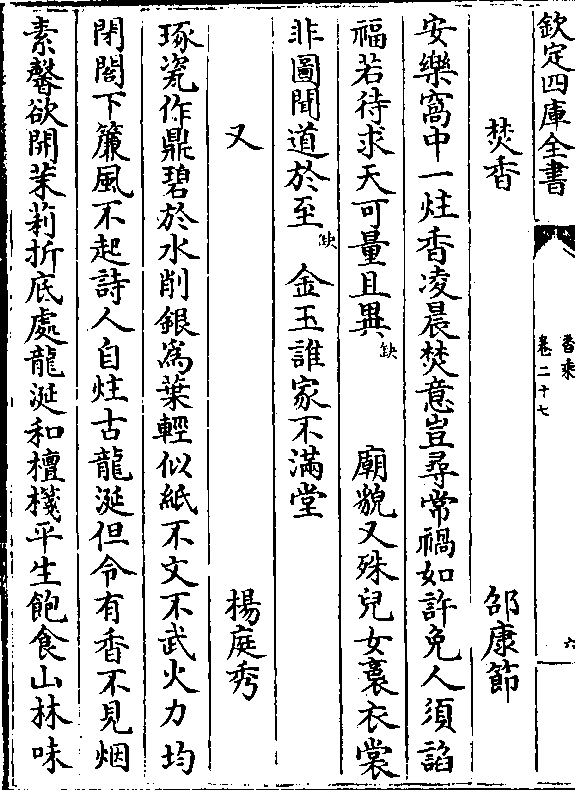 欽定四庫全書
香乘
卷二十七
六
焚香　邵康節
安樂窩中一炷香凌晨焚意豈尋常禍如許免人須諂
福若待求天可量且異缺　廟貌又殊兒女裛衣裳
非圖聞道於至缺　金玉誰家不滿堂
又　楊庭秀
琢瓷作鼎碧於水削銀為葉輕似紙不文不武火力均
閉閤下簾風不起詩人自炷古龍涎但令有香不見烟
素馨欲開茉莉折底處龍涎和檀棧平生飽食山林味